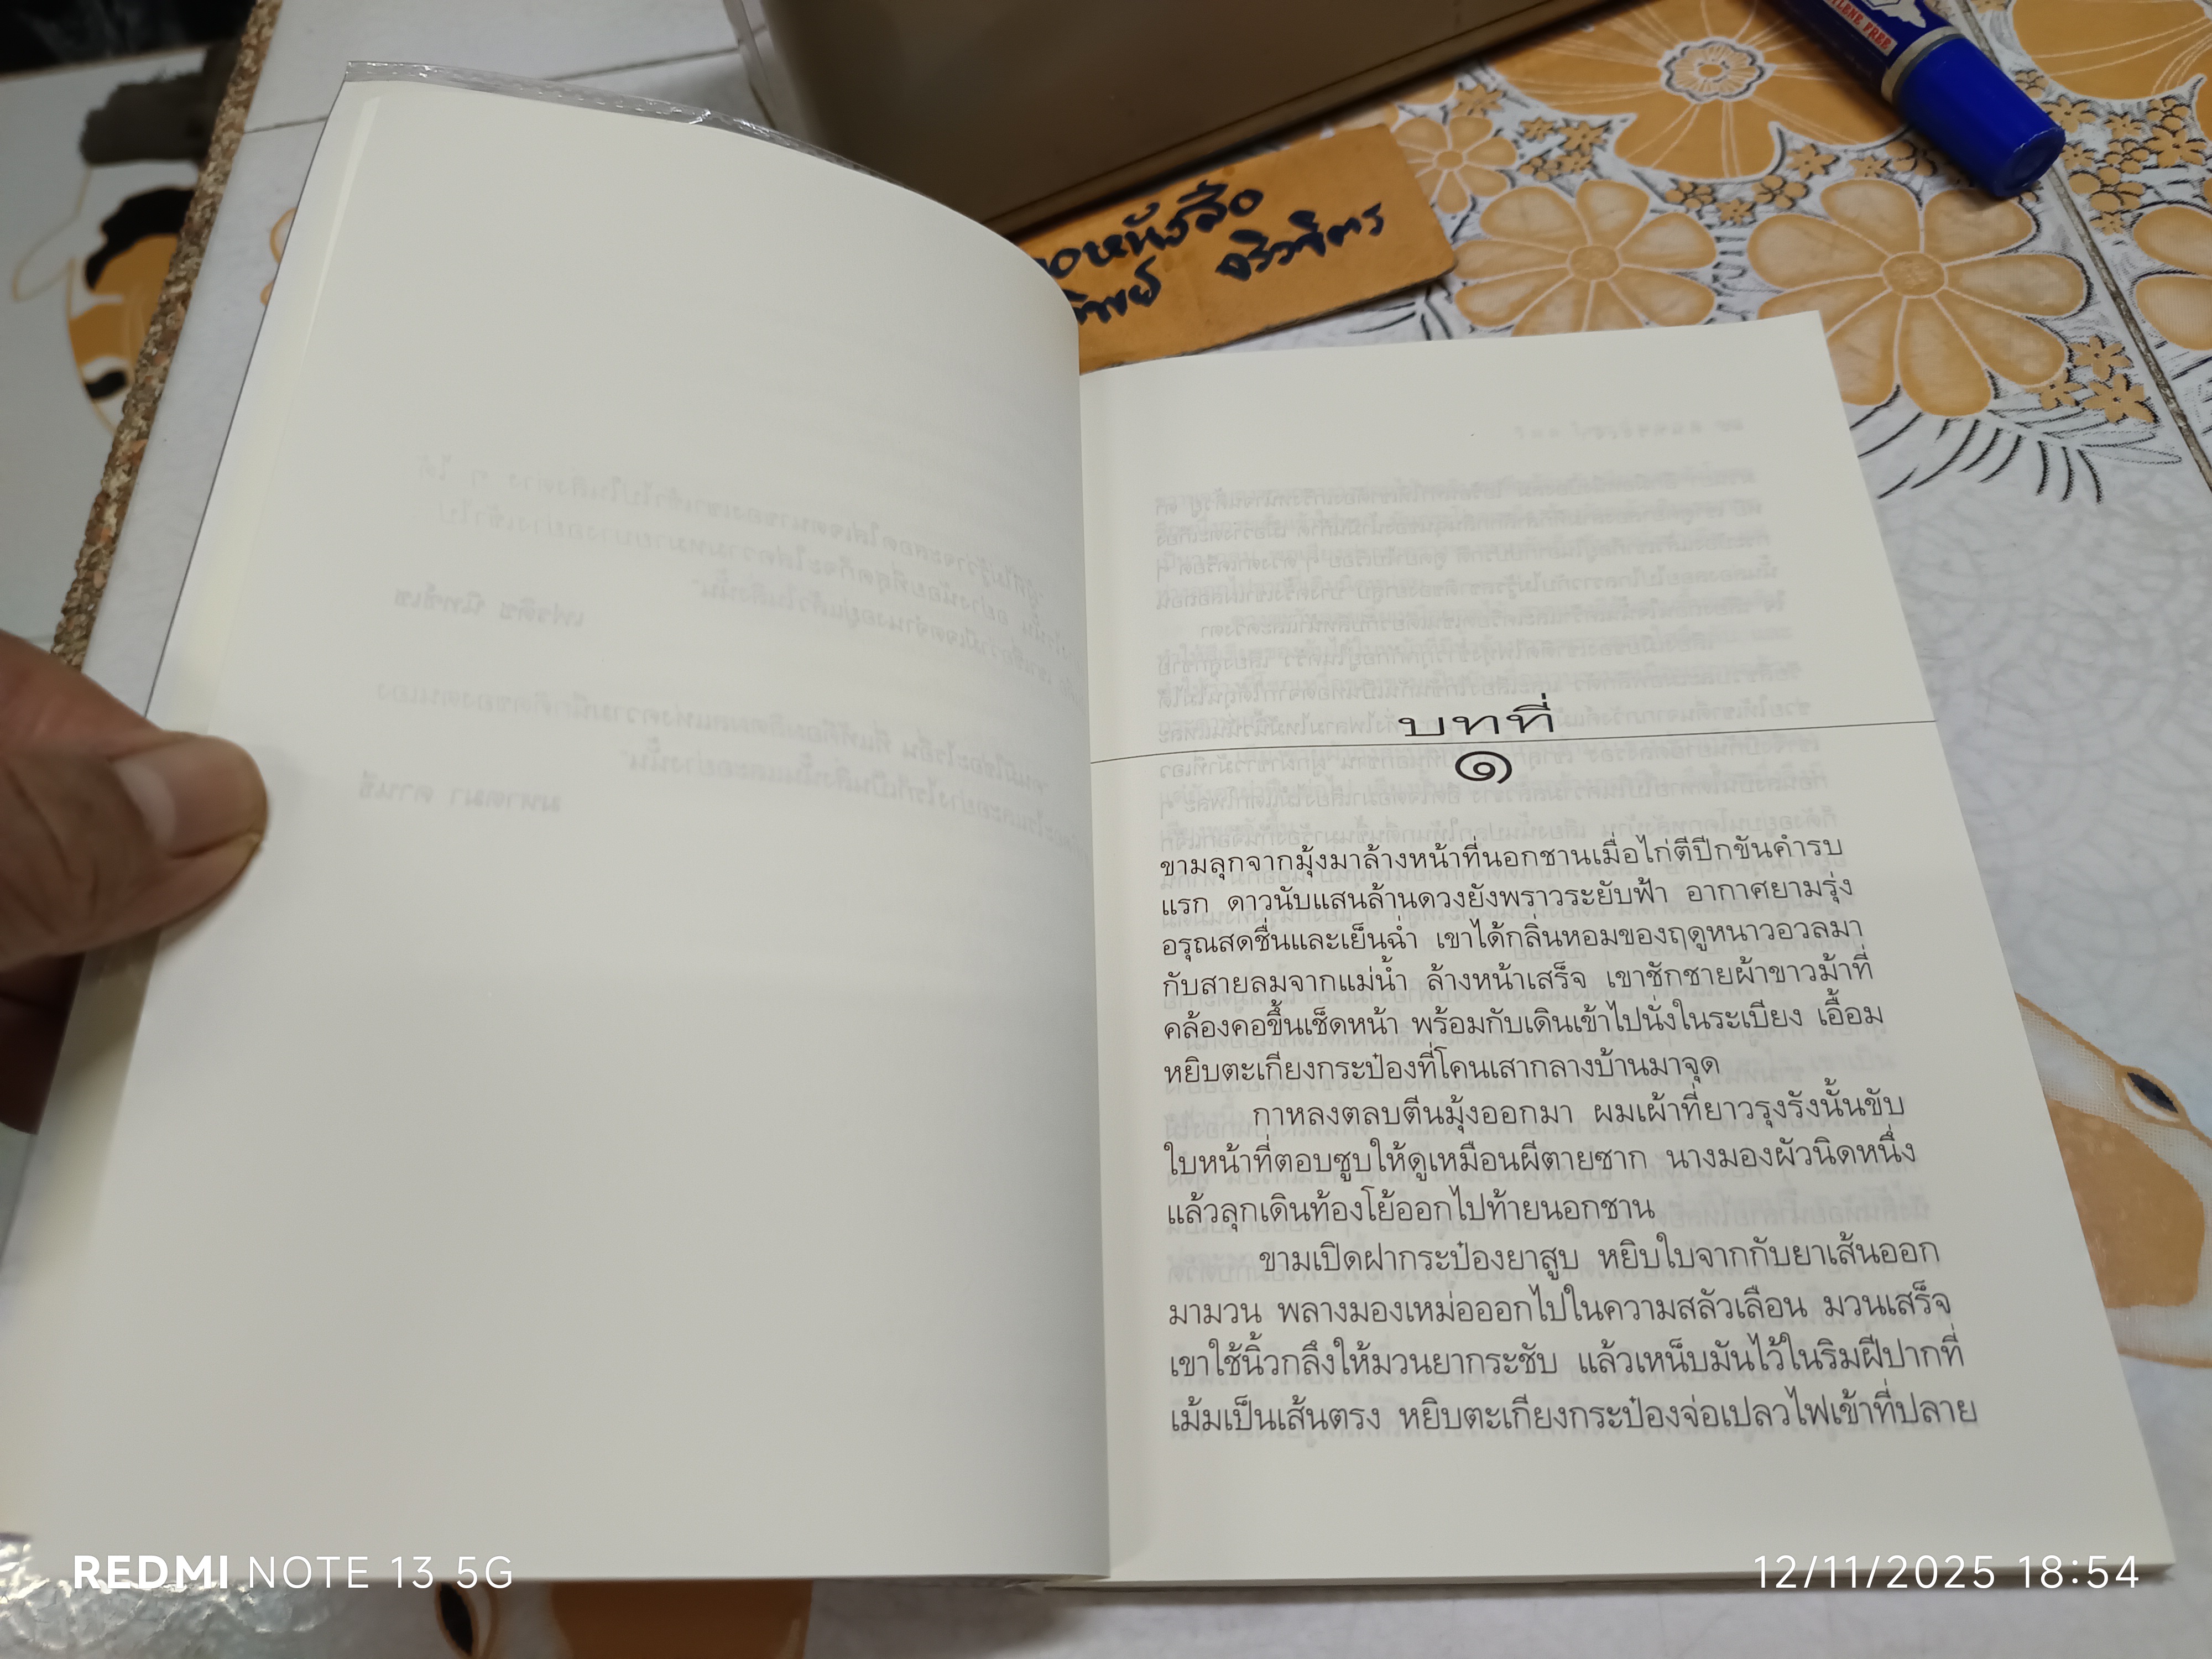 TYLENE FREE
อหนังสือ
ทิพย์ จิวจิตร
บทที่
๑
ขามลุกจากมุ้งมาล้างหน้าที่นอกชานเมื่อไก่ตีปีกขันคำรบ
แรก ดาวนับแสนล้านดวงยังพราวระยับฟ้า อากาศยามรุ่ง
อรุณสดชื่นและเย็นฉ่ำ เขาได้กลิ่นหอมของฤดูหนาวอวลมา
กับสายลมจากแม่น้ำ ล้างหน้าเสร็จ เขาชักชายผ้าขาวม้าที่
คล้องคอขึ้นเช็ดหน้า พร้อมกับเดินเข้าไปนั่งในระเบียง เอื้อม
หยิบตะเกียงกระป๋องที่โคนเสากลางบ้านมาจุด
กาหลงตลบตีนมุ้งออกมา ผมเผ้าที่ยาวรุงรังนั้นขับ
ใบหน้าที่ตอบซูบให้ดูเหมือนผีตายซาก นางมองผัวนิดหนึ่ง
แล้วลุกเดินท้องโย้ออกไปท้ายนอกชาน
ขามเปิดฝากระป๋องยาสูบ หยิบใบจากกับยาเส้นออก
มามวน พลางมองเหม่อออกไปในความสลัวเลือน มวนเสร็จ
เขาใช้นิ้วกลึงให้มวนยากระชับ แล้วเหน็บมันไว้ในริมฝีปากที่
เม้มเป็นเส้นตรง หยิบตะเกียงกระป๋องจ่อเปลวไฟเข้าที่ปลาย
REDMI NOTE 13 5G
12/11/2025 18:54